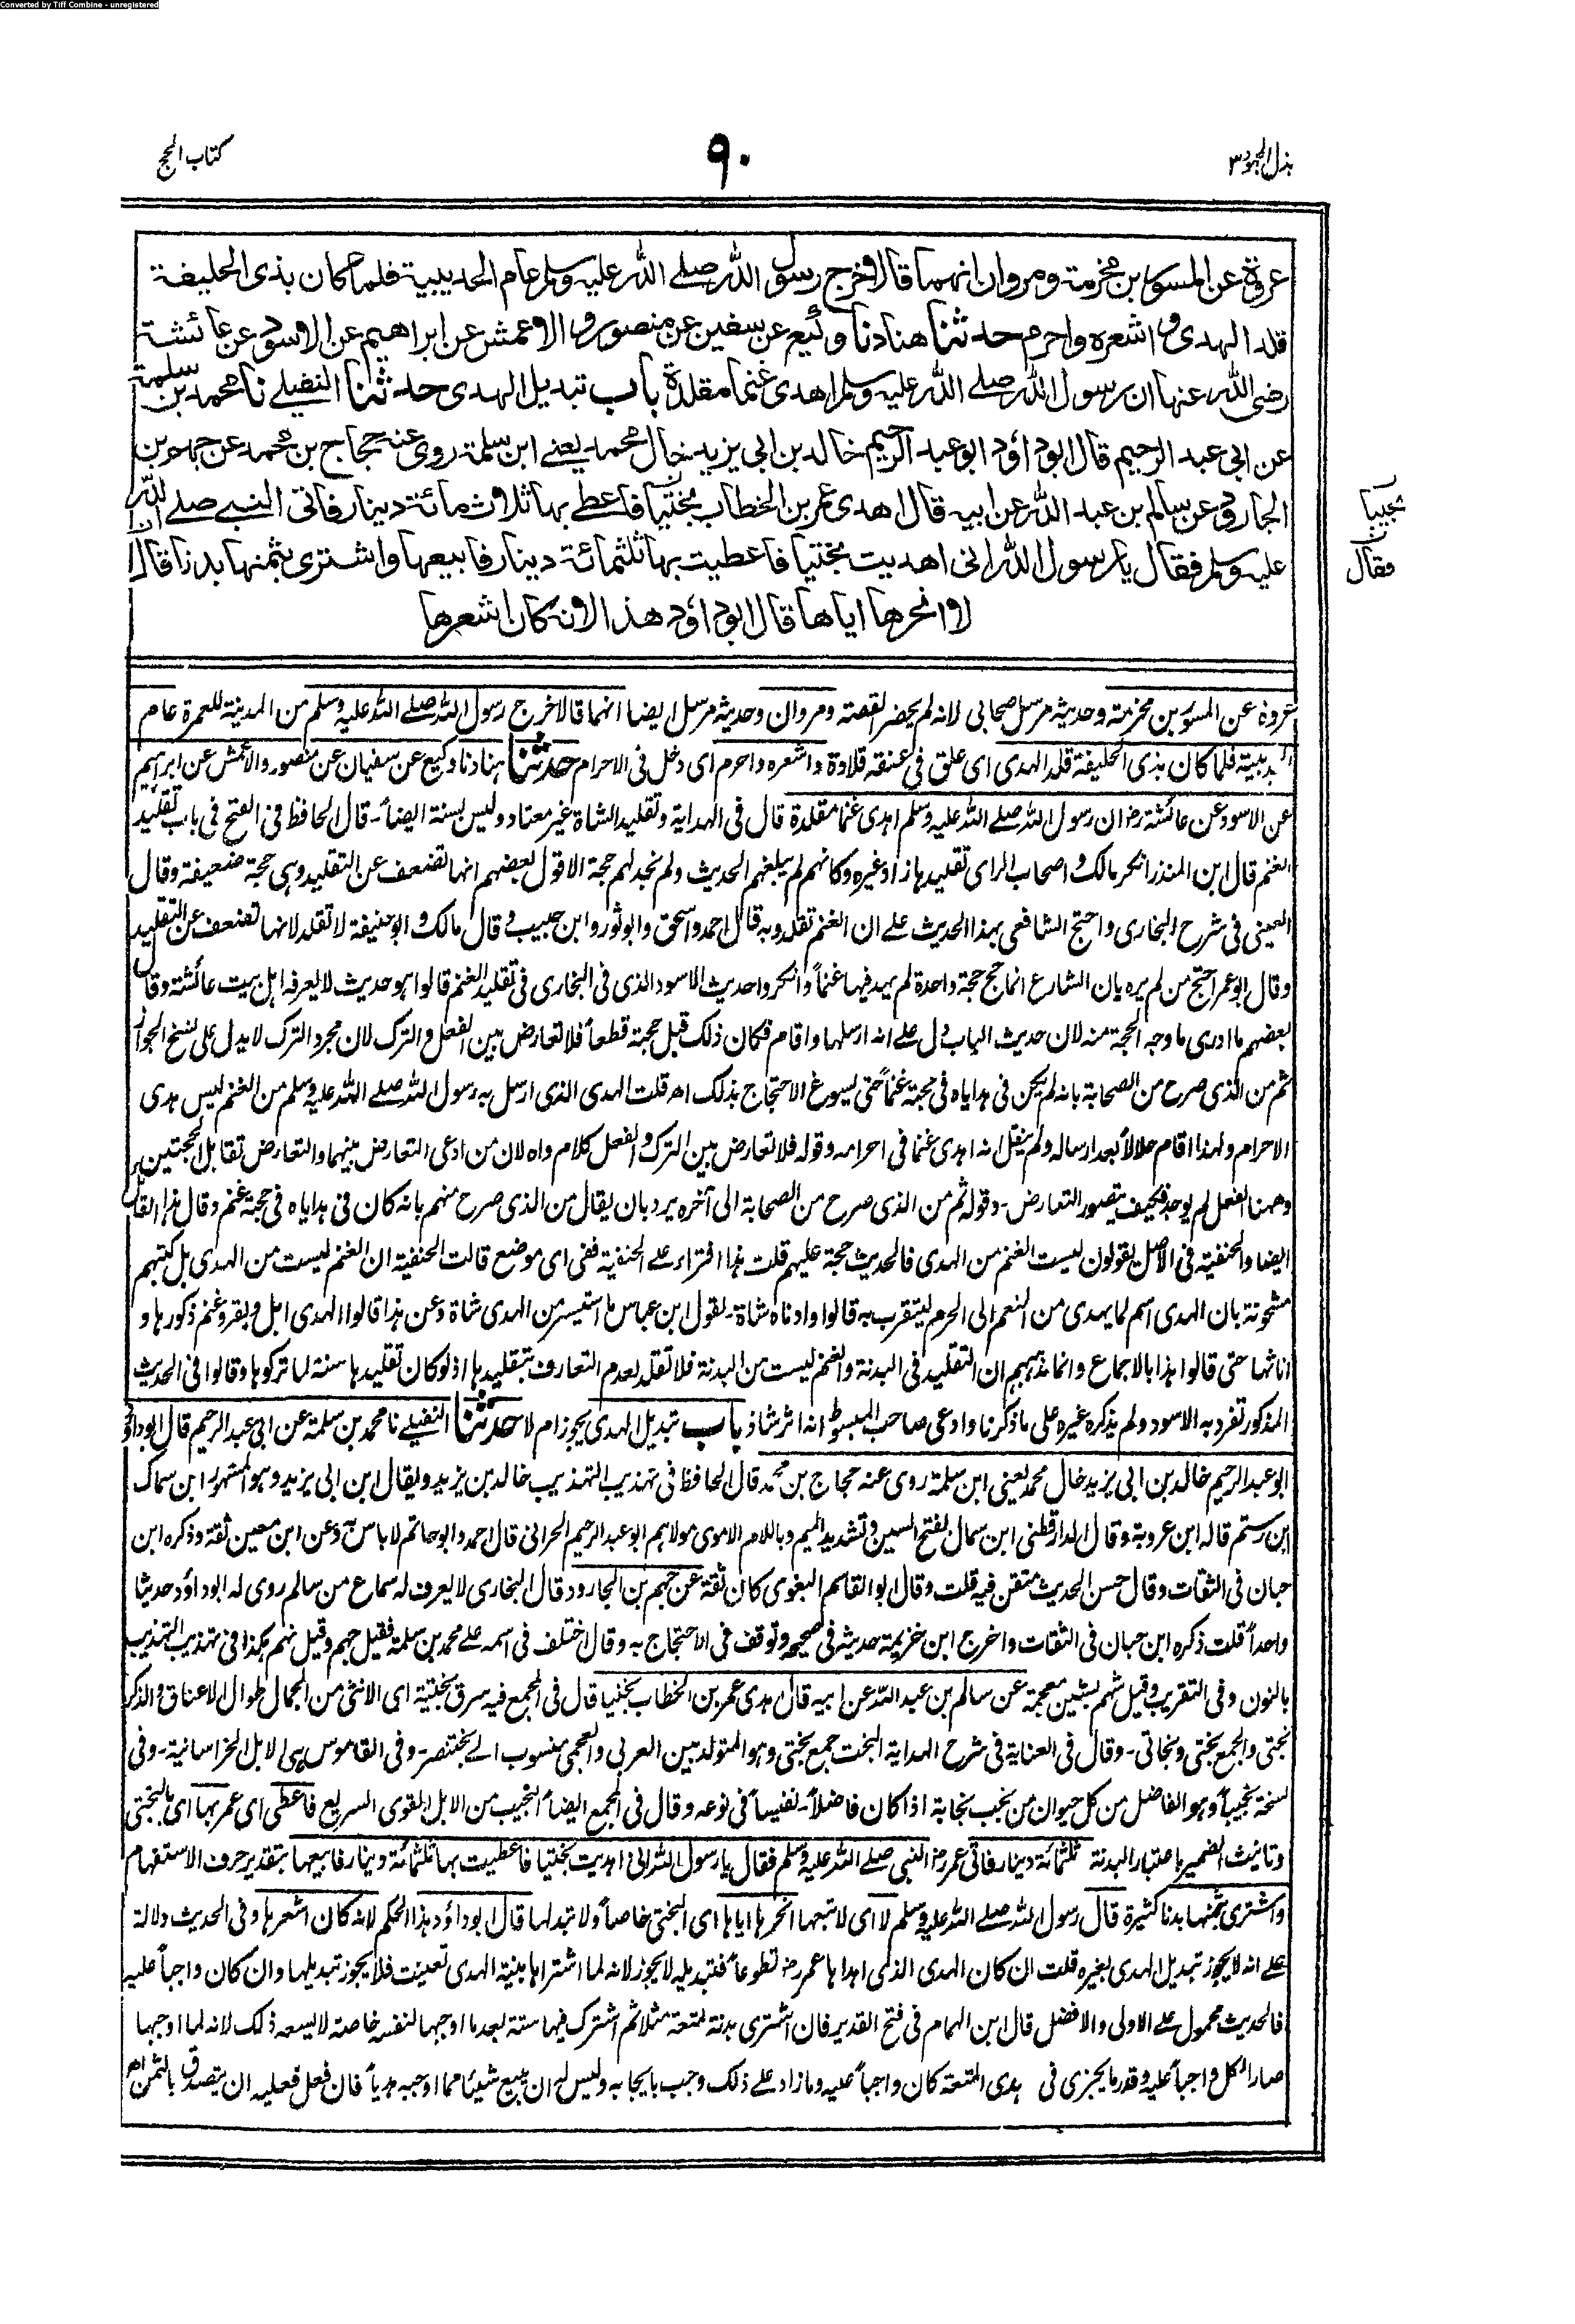 Converted by Tiff Combine - unregistered
بذل المجهود ٣
٩٠
كتاب الحج
عروة عن المسور بن مخرمة ومروان انهما قالا خرج رسول الله صلے الله عليه وسلم عام الحديبية فلما كان بذى الحليفة
قلد الهدى و اشعره واحرم حدثنا هناد نا وكيع عن سفين عن منصور و الاعمش عن ابراهيم عن الاسود عن عائشة
رضى الله عنها ان رسول الله صلے الله عليه وسلم اهدى غنما مقلدة باب تبديل الهدى حدثنا النفيلے نا محمد بن سلمة
عن ابى عبد الرحيم قال ابو داؤد ابو عبد الرحيم خالد بن ابى يزيد خال محمد يعنے ابن سلمة روى عنه حجاج بن محمد عن جهم بن
الجارود عن سالم بن عبد الله عن ابيه قال اهدى عمر بن الخطاب بختيا فاعطے بها ثلاث مائة دينار فاتى النبے صلے الله
نجيبا
عليه وسلم فقال يا رسول الله انى اهديت بختيا فاعطيت بها ثلثمائة دينار فابيعها واشترى بثمنها بدنا قال
فقال
لا وانحرها اياها قال ابو داؤد هذا لانه كان اشعرها
عروة عن المسور بن مخرمة وحديثه مرسل صحابى لانه لم يحضر القصة ومروان وحديثه مرسل ايضا انهما قالا خرج رسول الله صلے الله عليه وسلم من المدينة للعمرة عام
الحديبية فلما كان بذى الحليفة قلد الهدى اى علق فى عنقه قلادة واشعره واحرم اى دخل فى الاحرام حدثنا هناد نا وكيع عن سفيان عن منصور والاعمش عن ابراہيم
عن الاسود عن عائشة رض ان رسول الله صلے الله عليه وسلم اہدى غنما مقلدة قال فى الہداية وتقليد الشاة غير معتاد وليس بسنة ايضاً۔ قال الحافظ فى الفتح فى باب تقليد
الغنم قال ابن المنذر انكر مالك و اصحاب الراى تقليدہا زاد غيره وكانهم لم يبلغهم الحديث ولم نجد لهم حجة الا قول بعضهم انها تضعف عن التقليد وہى حجة ضعيفة وقال
العينى فى شرح البخارى واحتج الشافعى بهذا الحديث على ان الغنم تقلد وبه قال احمد واسحق وابو ثور وابن حبيب و قال مالك و ابو حنيفة لا تقلد لانها تضعف عن التقليد
وقال ابو عمر احتج من لم يره بان الشارع انما حج حجة واحدة لم يهد فيها غنماً وانكروا حديث الاسود الذى فى البخارى فى تقليد الغنم قالوا ہو حديث لا يعرفه اہل بيت عائشة وقال
بعضهم ما ادرى ما وجه الحجة منه لان حديث الباب دل على انه ارسلها واقام فكان ذلك قبل حجته قطعاً فلا تعارض بين الفعل والترك لان مجرد الترك لا يدل على نسخ الجواز
ثم من الذى صرح من الصحابة بانه لم يكن فى ہداياه فى حجته غنماً حتى يسوغ الاحتجاج بذلك اھ قلت الهدى الذى ارسل به رسول الله صلے الله عليه وسلم من الغنم ليس ہدى
الاحرام ولهذا اقام حلالاً بعد ارساله ولم ينقل انه اہدى غنما فى احرامه وقوله فلا تعارض بين الترك و الفعل كلام واه لان من ادعى التعارض بينهما والتعارض تقابل الحجتين
وههنا الفعل لم يوجد فكيف يتصور التعارض۔ وقوله ثم من الذى صرح من الصحابة الى آخره يرد بان يقال من الذى صرح منهم بانه كان فى ہداياه فى حجته غنم وقال ہذا القائل
ايضا والحنفية فى الاصل يقولون ليست الغنم من الهدى فالحديث حجة عليهم قلت ہذا افتراء على الحنفية ففى اى موضع قالت الحنفية ان الغنم ليست من الهدى بل كتبهم
مشحونة بان الهدى اسم لما يهدى من النعم الى الحرم ليتقرب به قالوا وادناه شاة۔ لقول ابن عباس ما استيسر من الهدى شاة وعن ہذا قالوا الهدى ابل و بقر وغنم ذكورہا و
اناثها حتى قالوا ہذا بالاجماع وانما مذہبهم ان التقليد فى البدنة والغنم ليست من البدنة فلا تقلد لعدم التعارف بتقليدہا اذ لو كان تقليدہا سنة لما تركوہا وقالوا فى الحديث
المذكور تفرد به الاسود ولم يذكره غيره على ما ذكرنا وادعى صاحب المبسوط انه اثر شاذ باب تبديل الهدى يجوز ام لا حدثنا النفيلے نا محمد بن سلمة عن ابى عبد الرحيم قال ابو داؤد
ابو عبد الرحيم خالد بن ابى يزيد خال محمد يعنى ابن سلمة روى عنه حجاج بن محمد قال الحافظ فى تهذيب التهذيب خالد بن يزيد ويقال ابن ابى يزيد وہو المشهور ابن سماك
ابن رستم قاله ابن عروبة وقال الدارقطنى ابن سمال بفتح السين وتشديد الميم وباللام الاموى مولاہم ابو عبد الرحيم الحرانى قال احمد وابو حاتم لا باس به وعن ابن معين ثقة وذكره ابن
حبان فى الثقات وقال حسن الحديث متقن فيه قلت وقال ابو القاسم البغوى كان ثقة عن جهم بن الجارود قال البخارى لا يعرف له سماع من سالم روى له ابو داؤد حديثا
واحداً قلت ذكره ابن حبان فى الثقات واخرج ابن خزيمة حديثه فى صحيحه وتوقف فى الاحتجاج به وقال اختلف فى اسمه على محمد بن سلمة فقيل جهم وقيل نهم ہكذا فى تهذيب التهذيب
بالنون وفى التقريب وقيل شهم بشين معجمة عن سالم بن عبد الله عن ابيه قال اہدى عمر بن الخطاب بختيا قال فى المجمع فيه سرق بختية اى الانثى من الجمال طوال الاعناق والذكر
بختى والجمع بختى وبخاتى۔ وقال فى العناية فى شرح الہداية البخت جمع بختى وہو المتولد بين العربى والعجمى منسوب الى بختنصر۔ وفى القاموس ہى الابل الخراسانية۔ وفى
نسخة نجيباً وہو الفاضل من كل حيوان من نجب نجابة اذا كان فاضلاً۔ نفيساً فى نوعه وقال فى المجمع ايضاً النجيب من الابل القوى السريع فاعطى اى عمر بها اى بالبختى
وتانيث الضمير باعتبار البدنة ثلثمائة دينار فاتى عمر رض النبى صلے الله عليه وسلم فقال يا رسول الله انى اہديت بختيا فاعطيت بها ثلثمائة دينار فابيعها بتقدير حرف الاستفهام
واشترى بثمنها بدنا كثيرة قال رسول الله صلے الله عليه وسلم لا اى لا تبعها انحرہا اياہا اى البختى خاصاً ولا تبدلها قال ابو داؤد ہذا الحكم لانه كان اشعرہا وفى الحديث دلالة
على انه لا يجوز تبديل الهدى بغيره قلت ان كان الهدى الذى اہداہا عمر رض تطوعاً فتبديله لا يجوز لانه لما اشتراہا بنية الهدى تعينت فلا يجوز تبديلها وان كان واجباً عليه
فالحديث محمول على الاولى والافضل قال ابن الهمام فى فتح القدير فان اشترى بدنة لمتعة مثلا ثم اشترك فيها ستة بعد ما اوجبها لنفسه خاصة لا يسعه ذلك لانه لما اوجبها
صار الكل واجباً عليه وقدر ما يجزى فى ہدى المتعة كان واجباً عليه وما زاد على ذلك وجب بايجابه وليس له ان يبيع شيئا مما اوجبه ہدياً فان فعل فعليه ان يتصدق بالثمن اھ